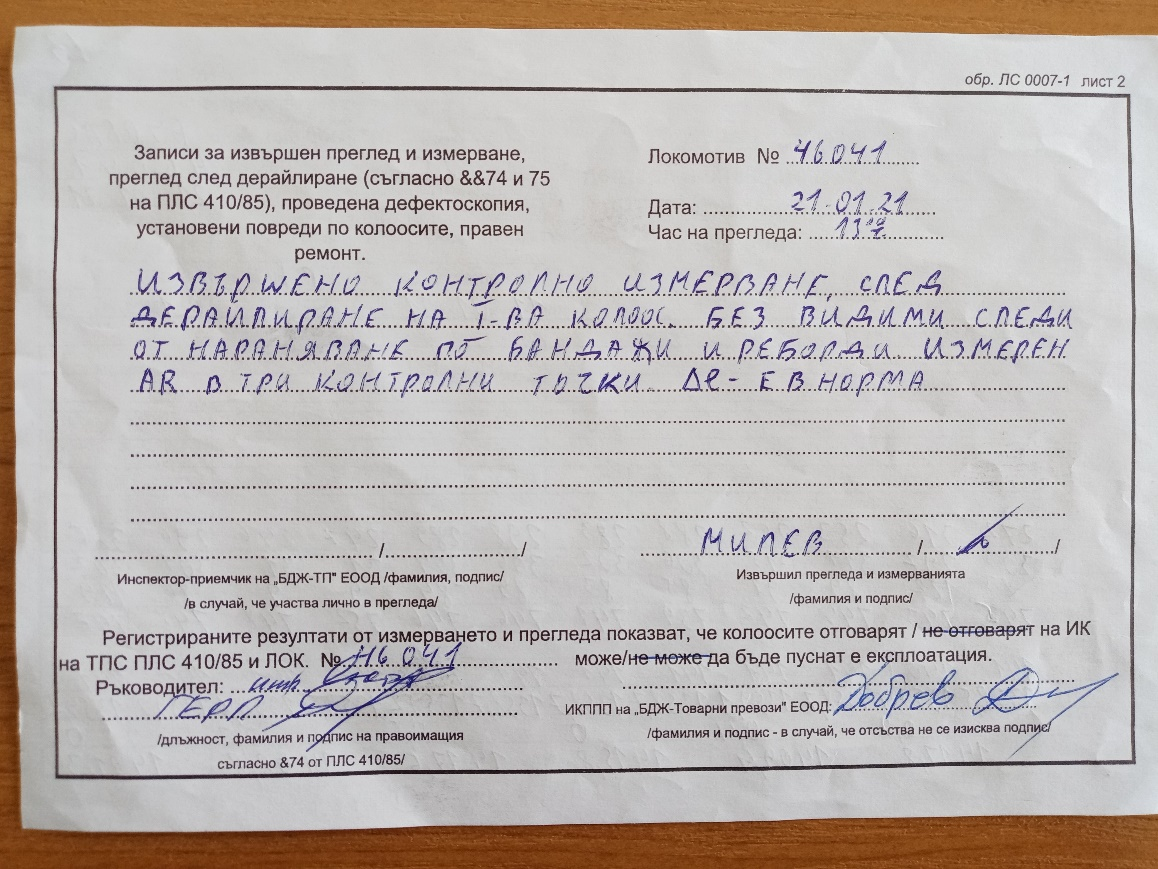 обр. ЛС 0007-1 лист 2
Записи за извършен преглед и измерване,
преглед след дерайлиране (съгласно &&74 и 75
на ПЛС 410/85), проведена дефектоскопия,
установени повреди по колоосите, правен
ремонт.
Локомотив № 46041
Дата: 21.01.21
Час на прегледа:
ИЗВЪРШЕНО КОНТРОЛНО ИЗМЕРВАНЕ, СЛЕД
ДЕРАЙЛИРАНЕ НА I-ВА КОЛООС. БЕЗ ВИДИМИ СЛЕДИ
ОТ НАРАНЯВАНЕ ПО БАНДАЖИ И РЕБОРДИ. ИЗМЕРЕН
AR В ТРИ КОНТРОЛНИ ТОЧКИ. - Е В НОРМА
/ /
МИЛЕВ / /
Инспектор-приемчик на „БДЖ-ТП" ЕООД /фамилия, подпис/
/в случай, че участва лично в прегледа/
Извършил прегледа и измерванията
/фамилия и подпис/
Регистрираните резултати от измерването и прегледа показват, че колоосите отговарят / не отговарят на ИК
на ТПС ПЛС 410/85 и ЛОК. № 46041 може/не може да бъде пуснат в експлоатация.
Ръководител: инж.
ИКППП на „БДЖ-Товарни превози" ЕООД: Добрев
/длъжност, фамилия и подпис на правоимащия
съгласно &74 от ПЛС 410/85/
/фамилия и подпис - в случай, че отсъства не се изисква подпис/